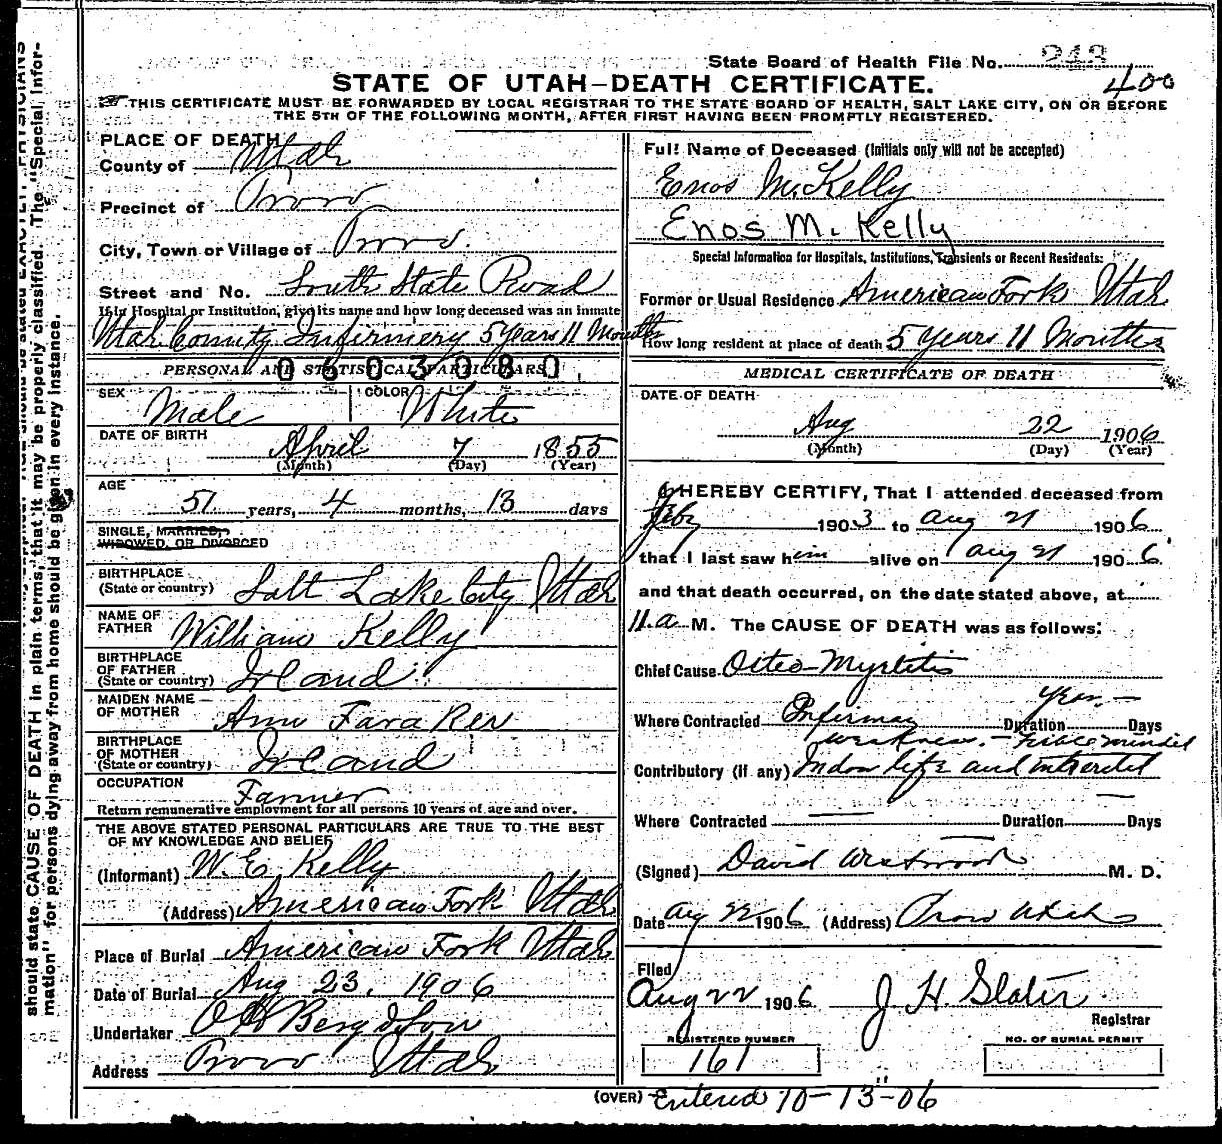 State Board of Health File No. 243
400
STATE OF UTAH—DEATH CERTIFICATE.
THIS CERTIFICATE MUST BE FORWARDED BY LOCAL REGISTRAR TO THE STATE BOARD OF HEALTH, SALT LAKE CITY, ON OR BEFORE
THE 5TH OF THE FOLLOWING MONTH, AFTER FIRST HAVING BEEN PROMPTLY REGISTERED.
PLACE OF DEATH
County of Utah
Precinct of Provo
City, Town or Village of Provo.
Street and No. South State Road
If in Hospital or Institution, give its name and how long deceased was an inmate
Utah County Infirmery 5 years 11 Months
PERSONAL AND STATISTICAL PARTICULARS
0603080
SEX Male COLOR White
DATE OF BIRTH
April 7 1855
(Month) (Day) (Year)
AGE
51 years, 4 months, 13 days
SINGLE, MARRIED,
WIDOWED, OR DIVORCED
BIRTHPLACE
(State or country) Salt Lake City Utah
NAME OF
FATHER William Kelly
BIRTHPLACE
OF FATHER
(State or country) Ireland
MAIDEN NAME
OF MOTHER Ann Faraker
BIRTHPLACE
OF MOTHER
(State or country) Ireland
OCCUPATION
Farmer
Return remunerative employment for all persons 10 years of age and over.
THE ABOVE STATED PERSONAL PARTICULARS ARE TRUE TO THE BEST
OF MY KNOWLEDGE AND BELIEF
(Informant) W. E. Kelly
(Address) American Fork Utah
Place of Burial American Fork Utah
Date of Burial Aug 23. 1906
Undertaker O H Berg & Son
Address Provo Utah
Full Name of Deceased (Initials only will not be accepted)
Enos M. Kelly
Enos M. Kelly
Special Information for Hospitals, Institutions, Transients or Recent Residents:
Former or Usual Residence American Fork Utah
How long resident at place of death 5 years 11 Months
MEDICAL CERTIFICATE OF DEATH
DATE OF DEATH
Aug 22 1906
(Month) (Day) (Year)
I HEREBY CERTIFY, That I attended deceased from
Feby 1903 to Aug 21 1906
that I last saw him alive on Aug 21 1906
and that death occurred, on the date stated above, at
11. a M. The CAUSE OF DEATH was as follows:
Chief Cause Osteo-Myelitis
years —
Where Contracted Infirmary Duration Days
weakness. —
Contributory (if any) Indoor life and
Where Contracted Duration Days
(Signed) David Westwood M. D.
Date Aug 22 1906 (Address) Provo Utah
Filed
Aug 22 1906 J H Slater
Registrar
REGISTERED NUMBER
161
NO. OF BURIAL PERMIT
(OVER) Entered 10-13-06
should state CAUSE OF DEATH in plain terms, that it may be properly classified. The "Special Infor-
mation" for persons dying away from home should be given in every instance.